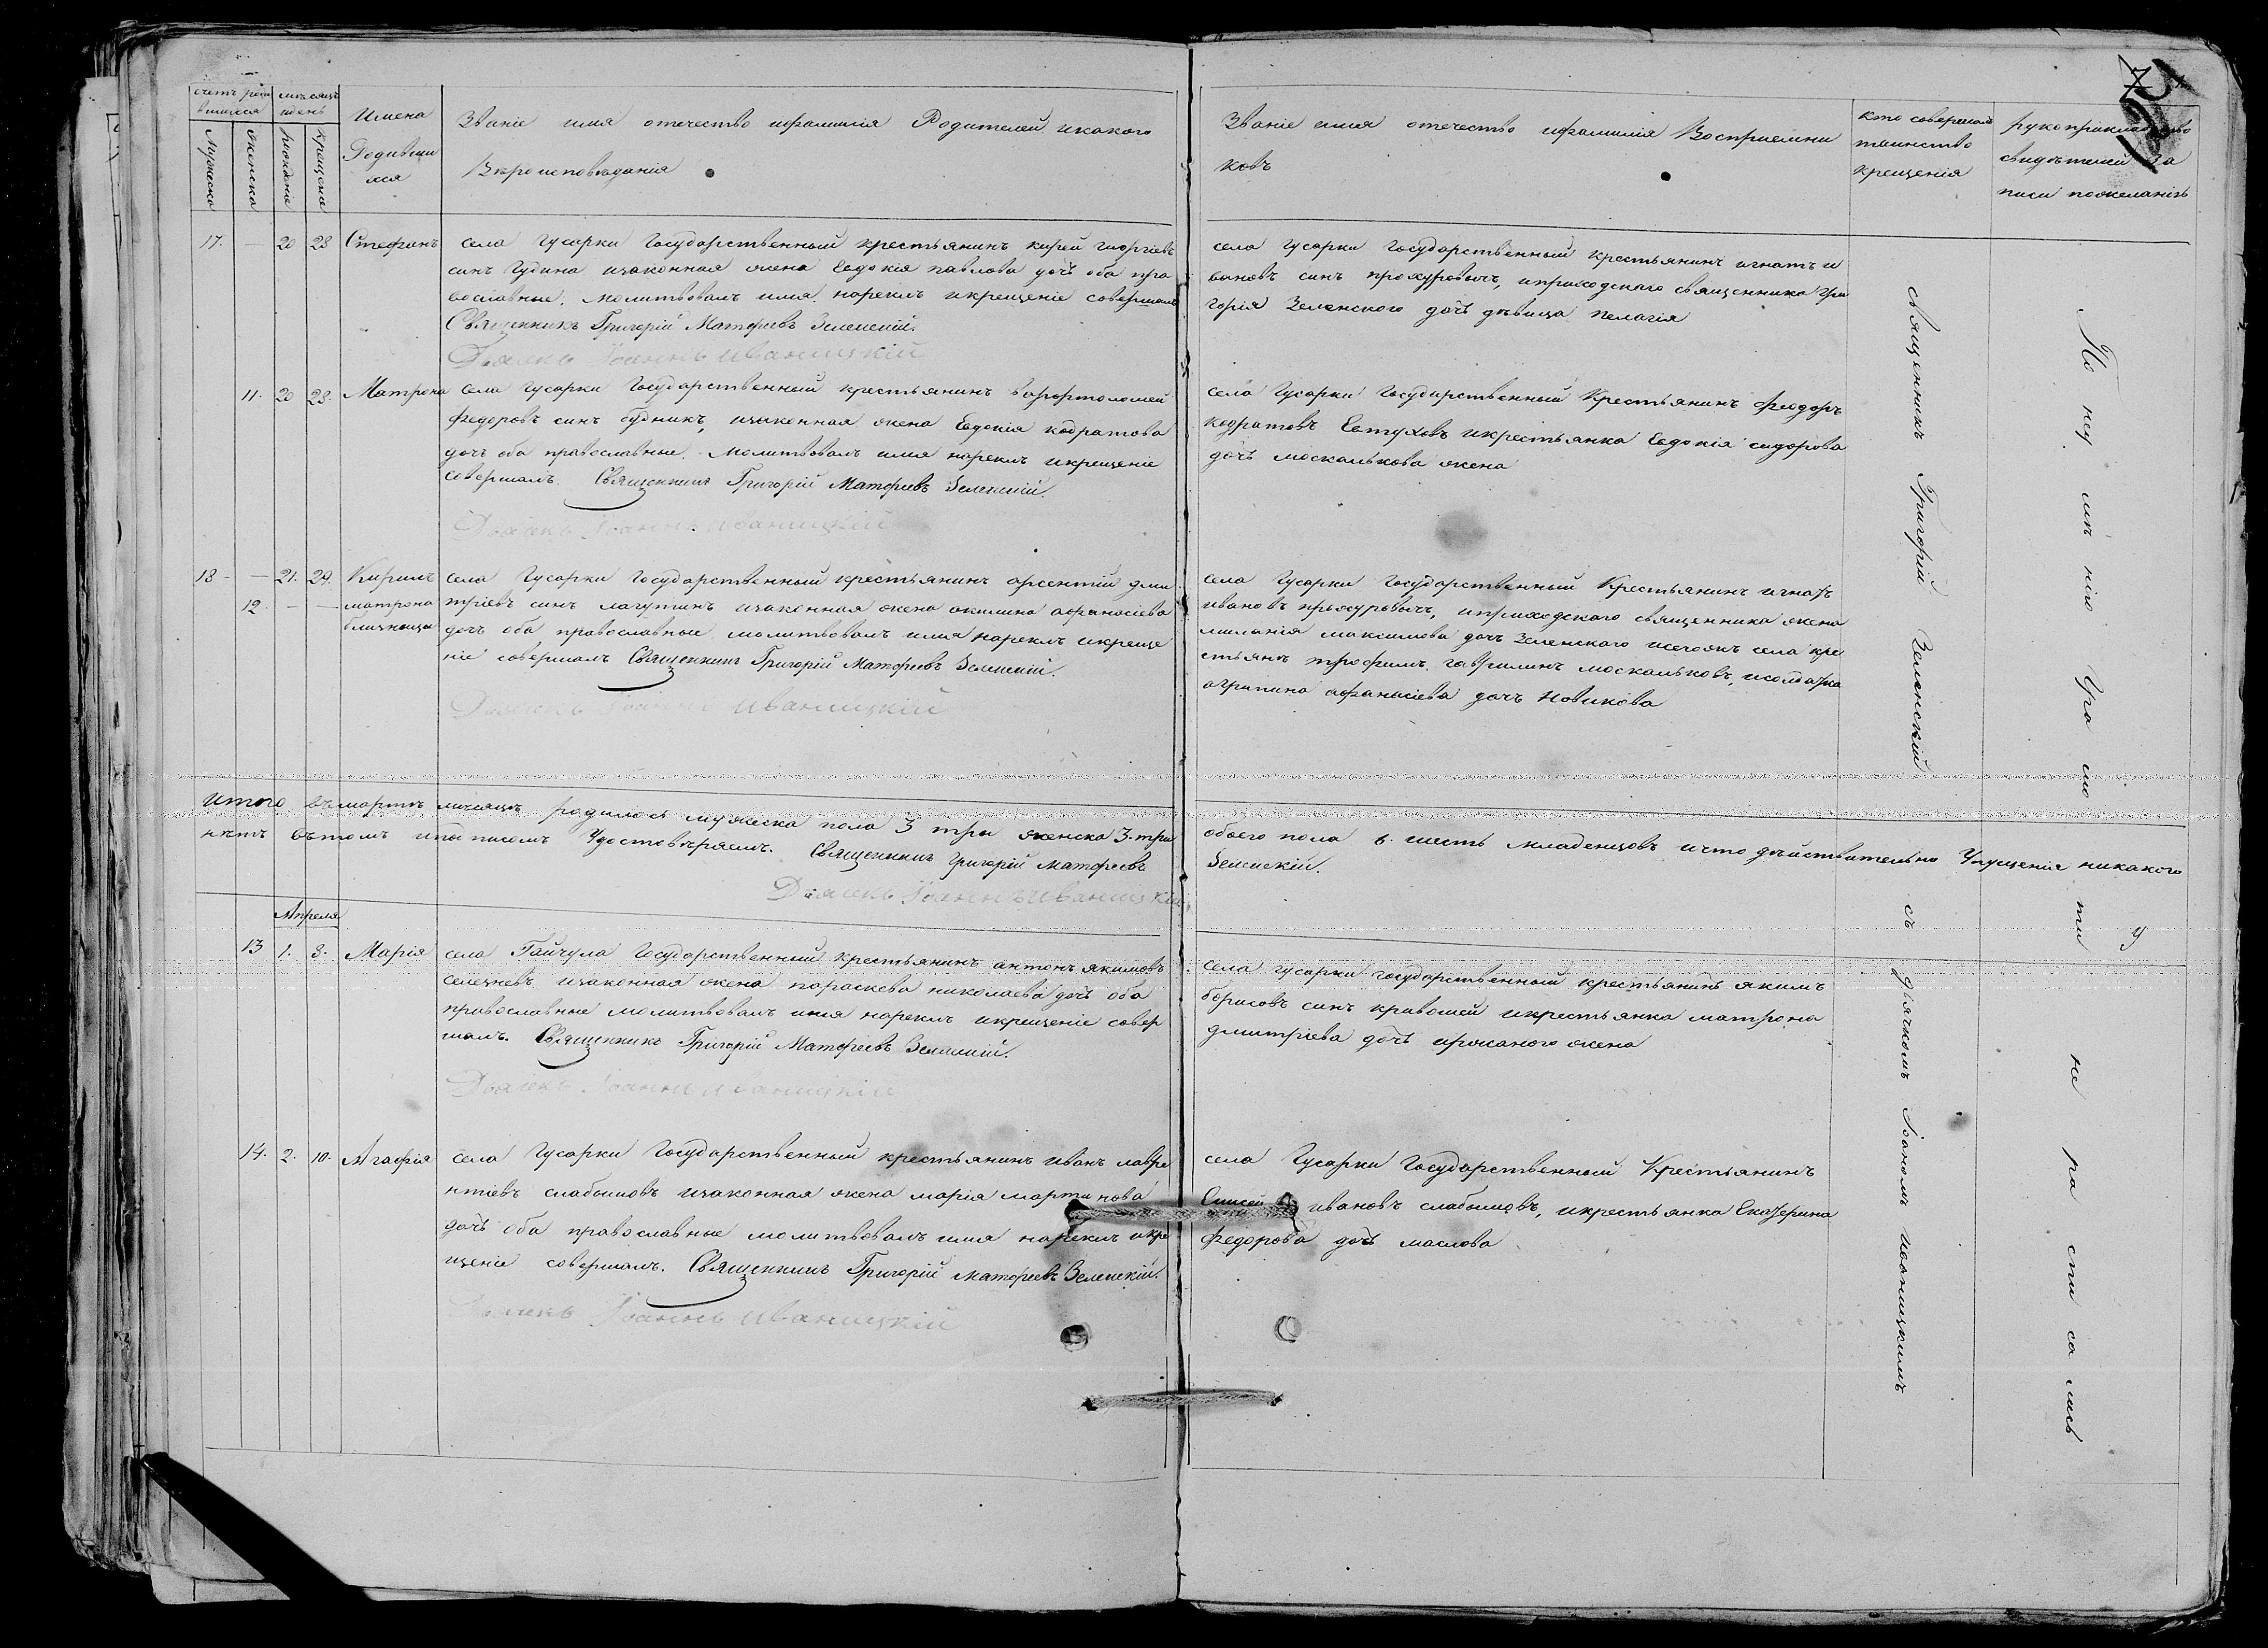 счетъ роди
вшихся
мѣсяцъ
идень
Мужеска
Женска
Рожденіе
Крещеніе
Имена
Родивши
хся
Званіе имя отечество ифамилія Родителей икакого
Вѣроисповѣданія
Званіе имя отечество ифамилія Восприемни
ковъ
кто совершалъ
таинство
крещенія
рукоприкладство
свидѣтелей за
писи пожеланію
17. — 20 28 Стефанъ
села Гусарки Государственный крестьянинъ кирей георгіевъ
синъ Гудина изаконная жена Евдокія павлова дочъ оба пра
вославные. молитвовалъ имя нарекъ икрещеніе совершалъ
Священникъ Григорій Матфеевъ Зеленскій.
Дьячекъ Іоаннъ Иваницкій
села Гусарки Государственный крестьянинъ игнатъ и
вановъ синъ прохуровичъ, иприходскаго священника Гри
горія Зеленского дочъ дѣвица пелагія
11. 20 28. Матрона
села Гусарки Государственный крестьянинъ варфоломей
федоровъ синъ будникъ, изаконная жена Евдокія кодратова
дочъ оба православные. Молитвовалъ имя нарекъ икрещеніе
совершалъ. Священникъ Григорій Матфеевъ Зеленскій.
Дьячекъ Іоаннъ Иваницкій
села Гусарки Государственный Крестьянинъ Феодоръ
кодратовъ Евтуховъ икрестьянка Евдокія сидорова
дочъ москалькова жена
18 — — 21. 29. Кирилъ
12. — — матрона
близнецы
села Гусарки Государственный крестьянинъ арсентій дми
тріевъ синъ лагутинъ изаконная жена акилина афанасіева
дочъ оба православные молитвовалъ имя нарекъ икреще
ніе совершалъ Священникъ Григорій Матфеевъ Зеленскій.
Дьячекъ Іоаннъ Иваницкій
села Гусарки Государственный Крестьянинъ игнатъ
ивановъ прохуровичъ, иприходскаго священника жена
миланія максимова дочъ Зеленского итогожъ села кре
стьянъ трофимъ гаврилинъ москальковъ, исолдатка
агрипина афанасіева дочъ Новикова
итого въмартѣ месяцѣ родилось мужеска пола 3 три женска 3. три
обоего пола 6. шесть младенцовъ ичто дѣйствительно Упущенія никакого
нѣтъ вътомъ иподписомъ Удостовѣряемъ. Священникъ Григорій матфеевъ
Зеленскій.
Дьячекъ Іоаннъ Иваницкій
Апреля
13 1. 8. Марія
села Гайчула Государственный крестьянинъ антонъ якимовъ
селезневъ изаконная жена параскева николаева дочъ оба
православные молитвовалъ имя нарекъ икрещеніе совер
шалъ. Священникъ Григорій Матфеевъ Зеленскій.
Дьячекъ Іоаннъ Иваницкій
села гусарки государственный крестьянинъ якимъ
борисовъ синъ кравошей икрестьянка матрона
дмитріева дочъ жена
14. 2. 10. Агафія
села Гусарки Государственный крестьянинъ иванъ лавре
нтіевъ слабышовъ изаконная жена марія мартинова
дочъ оба православные молитвовалъ имя нарекъ икре
щеніе совершалъ. Священникъ Григорій матфеевъ Зеленскій.
Дьячекъ Іоаннъ Иваницкій
села Гусарки Государственный Крестьянинъ
Елисей ивановъ слабышовъ, икрестьянка Екатерина
федорова дочъ маслова
священникъ Григорій Зеленскій
съ дьячкомъ Іоаномъ иваницкимъ
По неумѣнію Грамоти не расписались